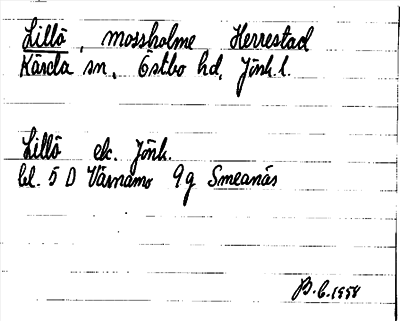 Lillö, mossholme Herrestad
Kärda sn, Östbo hd, Jönk. l.
Lillö ek. Jönk.
bl. 5 D Värnamo 9g Smeanäs
B.C. 1958